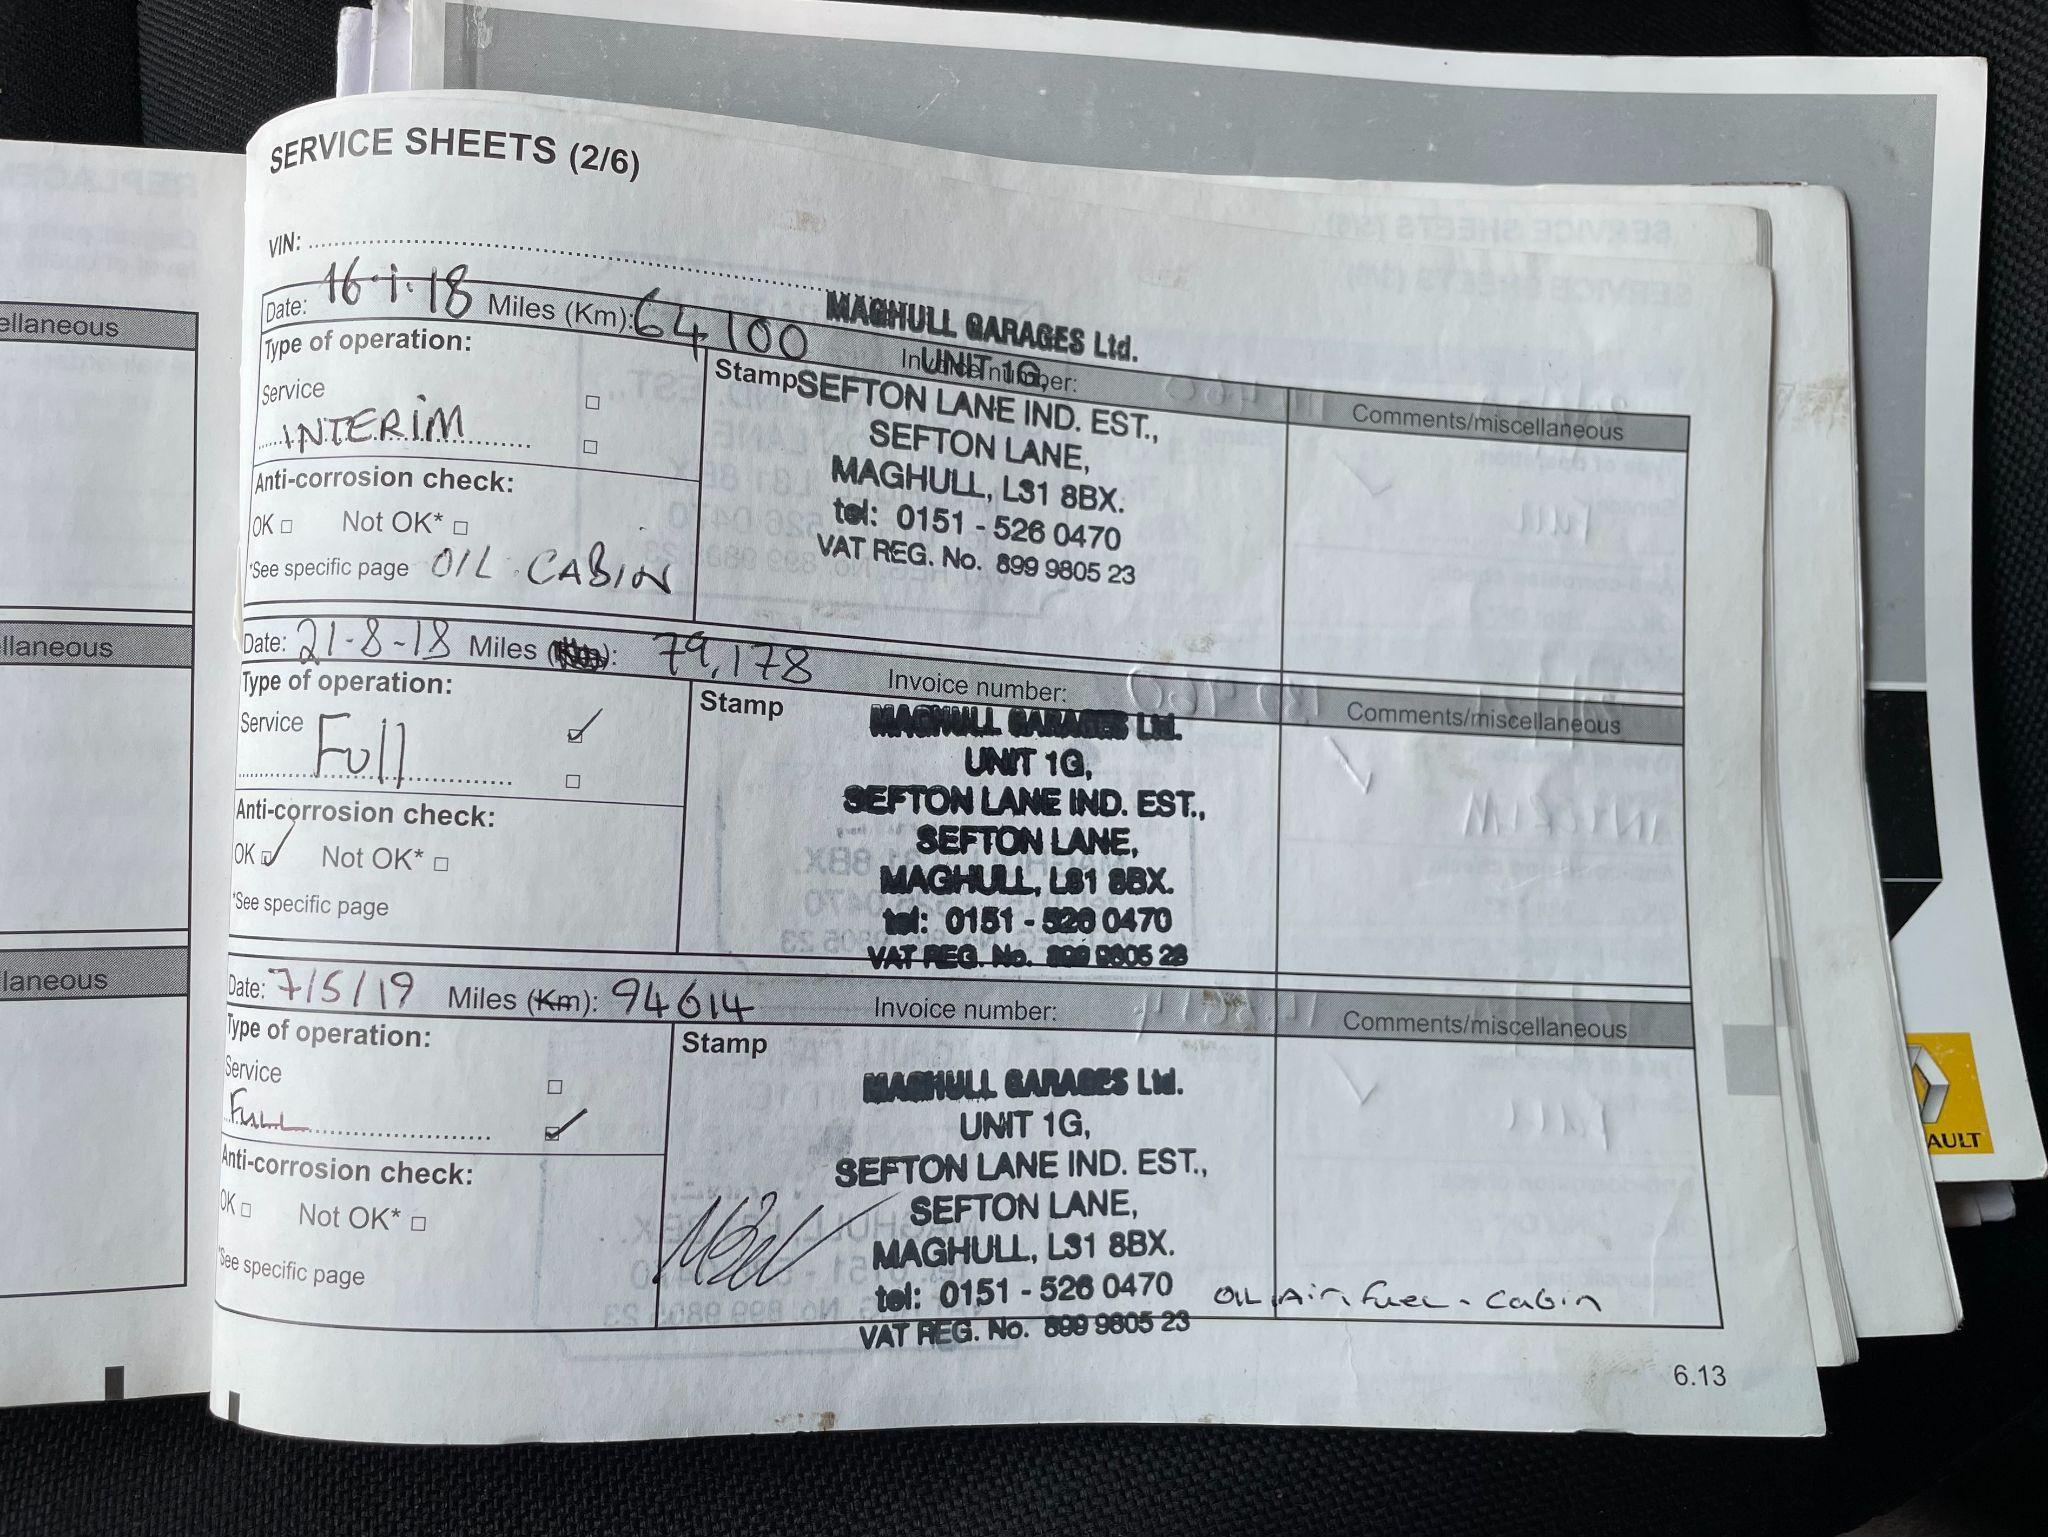 SERVICE SHEETS (2/6)
VIN:
Date: 16.1.18 Miles (Km): 64100 Invoice number:
MAGHULL GARAGES Ltd.
UNIT 1G,
SEFTON LANE IND. EST.,
SEFTON LANE,
MAGHULL, L31 8BX.
tel: 0151 - 526 0470
VAT REG. No. 899 9805 23
Type of operation:
Stamp
Comments/miscellaneous
Service
INTERIM
Anti-corrosion check:
OK Not OK*
*See specific page OIL CABIN
Date: 21-8-18 Miles ( ): 79,178 Invoice number:
Comments/miscellaneous
Type of operation:
Stamp
MAGHULL GARAGES Ltd.
UNIT 1G,
SEFTON LANE IND. EST.,
SEFTON LANE,
MAGHULL, L31 8BX.
tel: 0151 - 526 0470
VAT REG. No. 899 9805 23
Service
Full
Anti-corrosion check:
OK Not OK*
*See specific page
Date: 7/5/19 Miles (Km): 94614 Invoice number:
Comments/miscellaneous
Type of operation:
Stamp
MAGHULL GARAGES Ltd.
UNIT 1G,
SEFTON LANE IND. EST.,
SEFTON LANE,
MAGHULL, L31 8BX.
tel: 0151 - 526 0470
VAT REG. No. 899 9805 23
Service
FULL
Anti-corrosion check:
OK Not OK*
*See specific page
OIL Air. Fuel - Cabin
6.13
ellaneous
llaneous
laneous
AULT